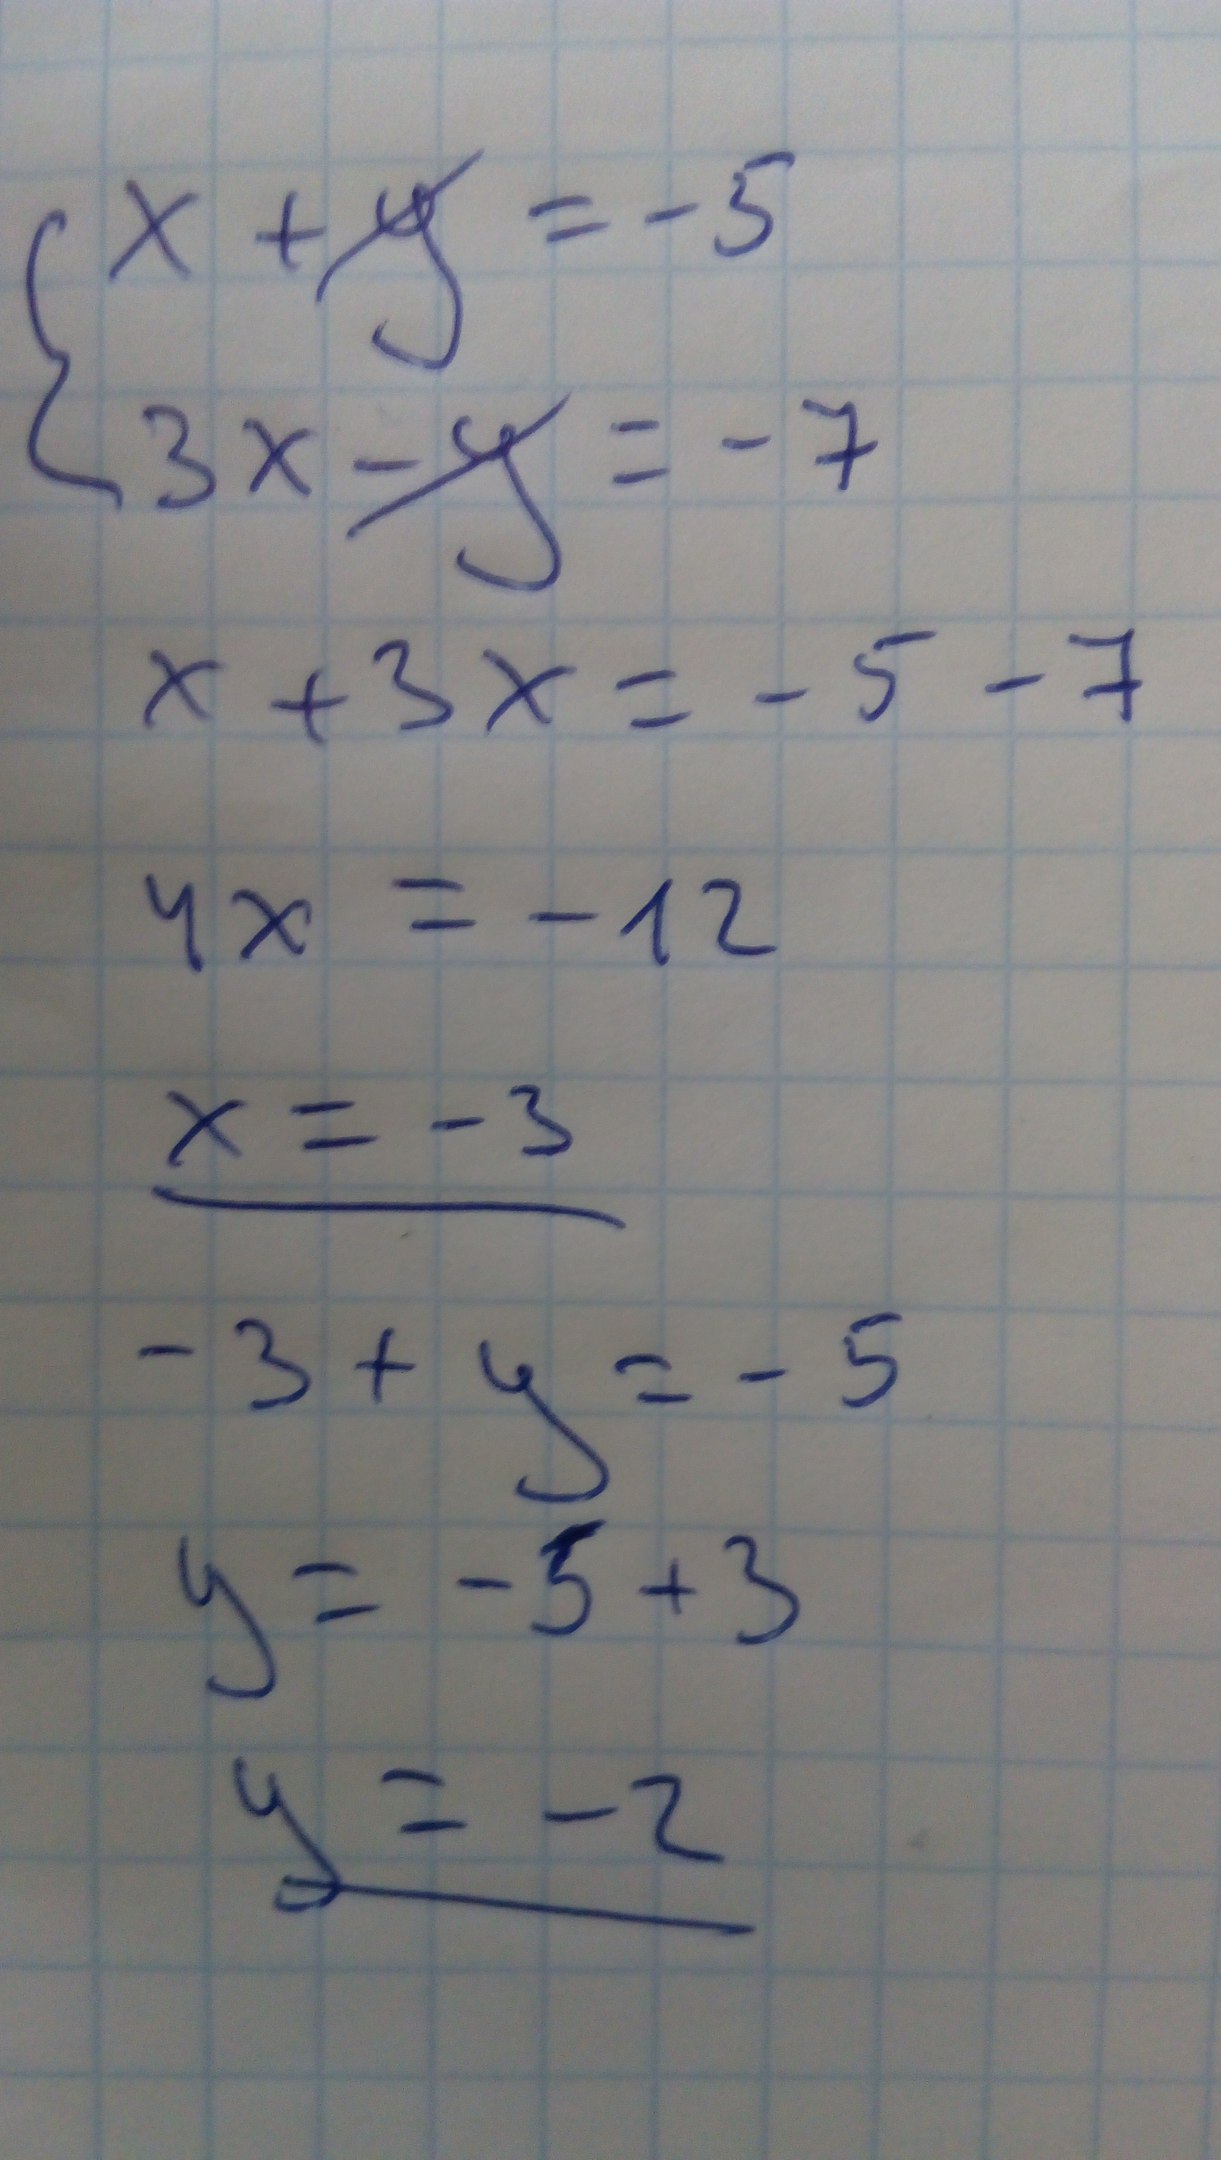 x + y = -5
3x - y = -7
x + 3x = -5 - 7
4x = -12
x = -3
-3 + y = -5
y = -5 + 3
y = -2